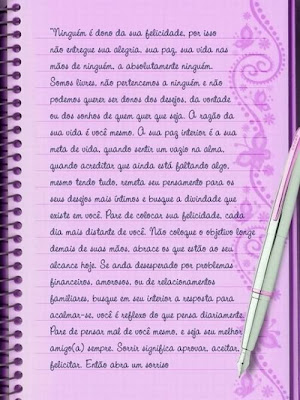 "Ninguém é dono da sua felicidade, por isso
não entregue sua alegria, sua paz, sua vida nas
mãos de ninguém, a absolutamente ninguém.
Somos livres, não pertencemos a ninguém e não
podemos querer ser donos dos desejos, da vontade
ou dos sonhos de quem quer que seja. A razão da
sua vida é você mesmo. A sua paz interior é a sua
meta de vida, quando sentir um vazio na alma,
quando acreditar que ainda está faltando algo,
mesmo tendo tudo, remeta seu pensamento para os
seus desejos mais íntimos e busque a divindade que
existe em você. Pare de colocar sua felicidade, cada
dia mais distante de você. Não coloque o objetivo longe
demais de suas mãos, abrace os que estão ao seu
alcance hoje. Se anda desesperado por problemas
financeiros, amorosos, ou de relacionamentos
familiares, busque em seu interior a resposta para
acalmar-se, você é reflexo do que pensa diariamente.
Pare de pensar mal de você mesmo, e seja seu melhor
amigo(a) sempre. Sorrir significa aprovar, aceitar,
felicitar. Então abra um sorriso